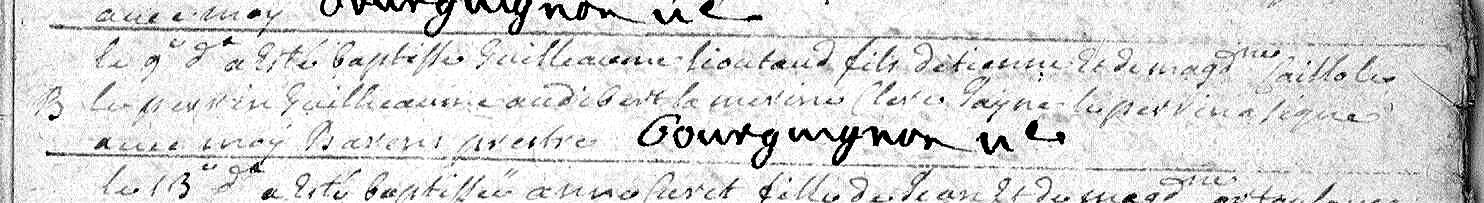 avec moy Bourguignon vic
le 9e dt a esté baptisse Guilheaume lioutaud fils detienne et de magdne
B le perrin Guilheaume audibert la merine Clere Payne le perrin a signe
avec moy prestre Bourguignon vic
le 13e dt a esté baptissée anne fille de Jean et de magdne